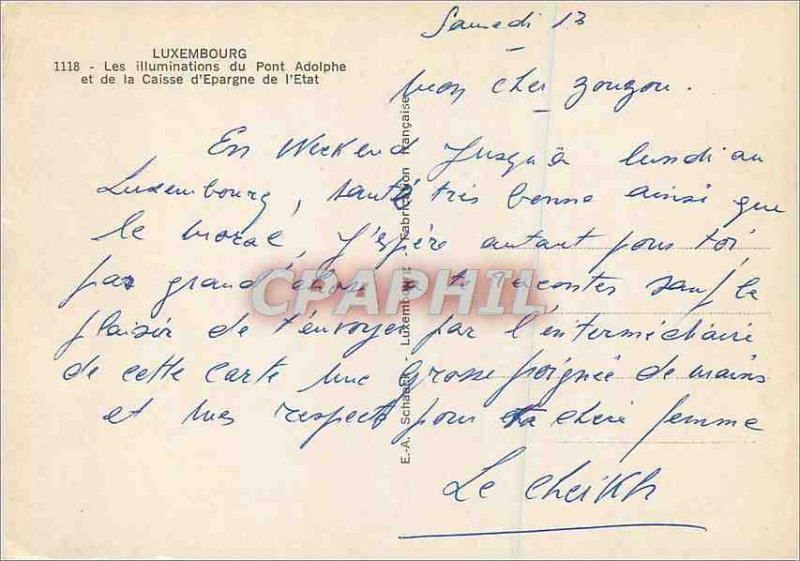 LUXEMBOURG
1118 - Les illuminations du Pont Adolphe
et de la Caisse d'Epargne de l'Etat
Samedi 13
Mon cher zouzou.
En Weekend Jusqu'à lundi au
Luxembourg, santé très bonne ainsi que
le moral, J'espère autant pour toi,
pas grand chose a te raconter sauf le
plaisir de t'envoyer par l'intermédiaire
de cette carte une grosse poignée de mains
et mes respect pour ta chère femme
Le Cheikh
E.-A. Schaack - Luxembourg - Fabrication Française
CPAPHIL